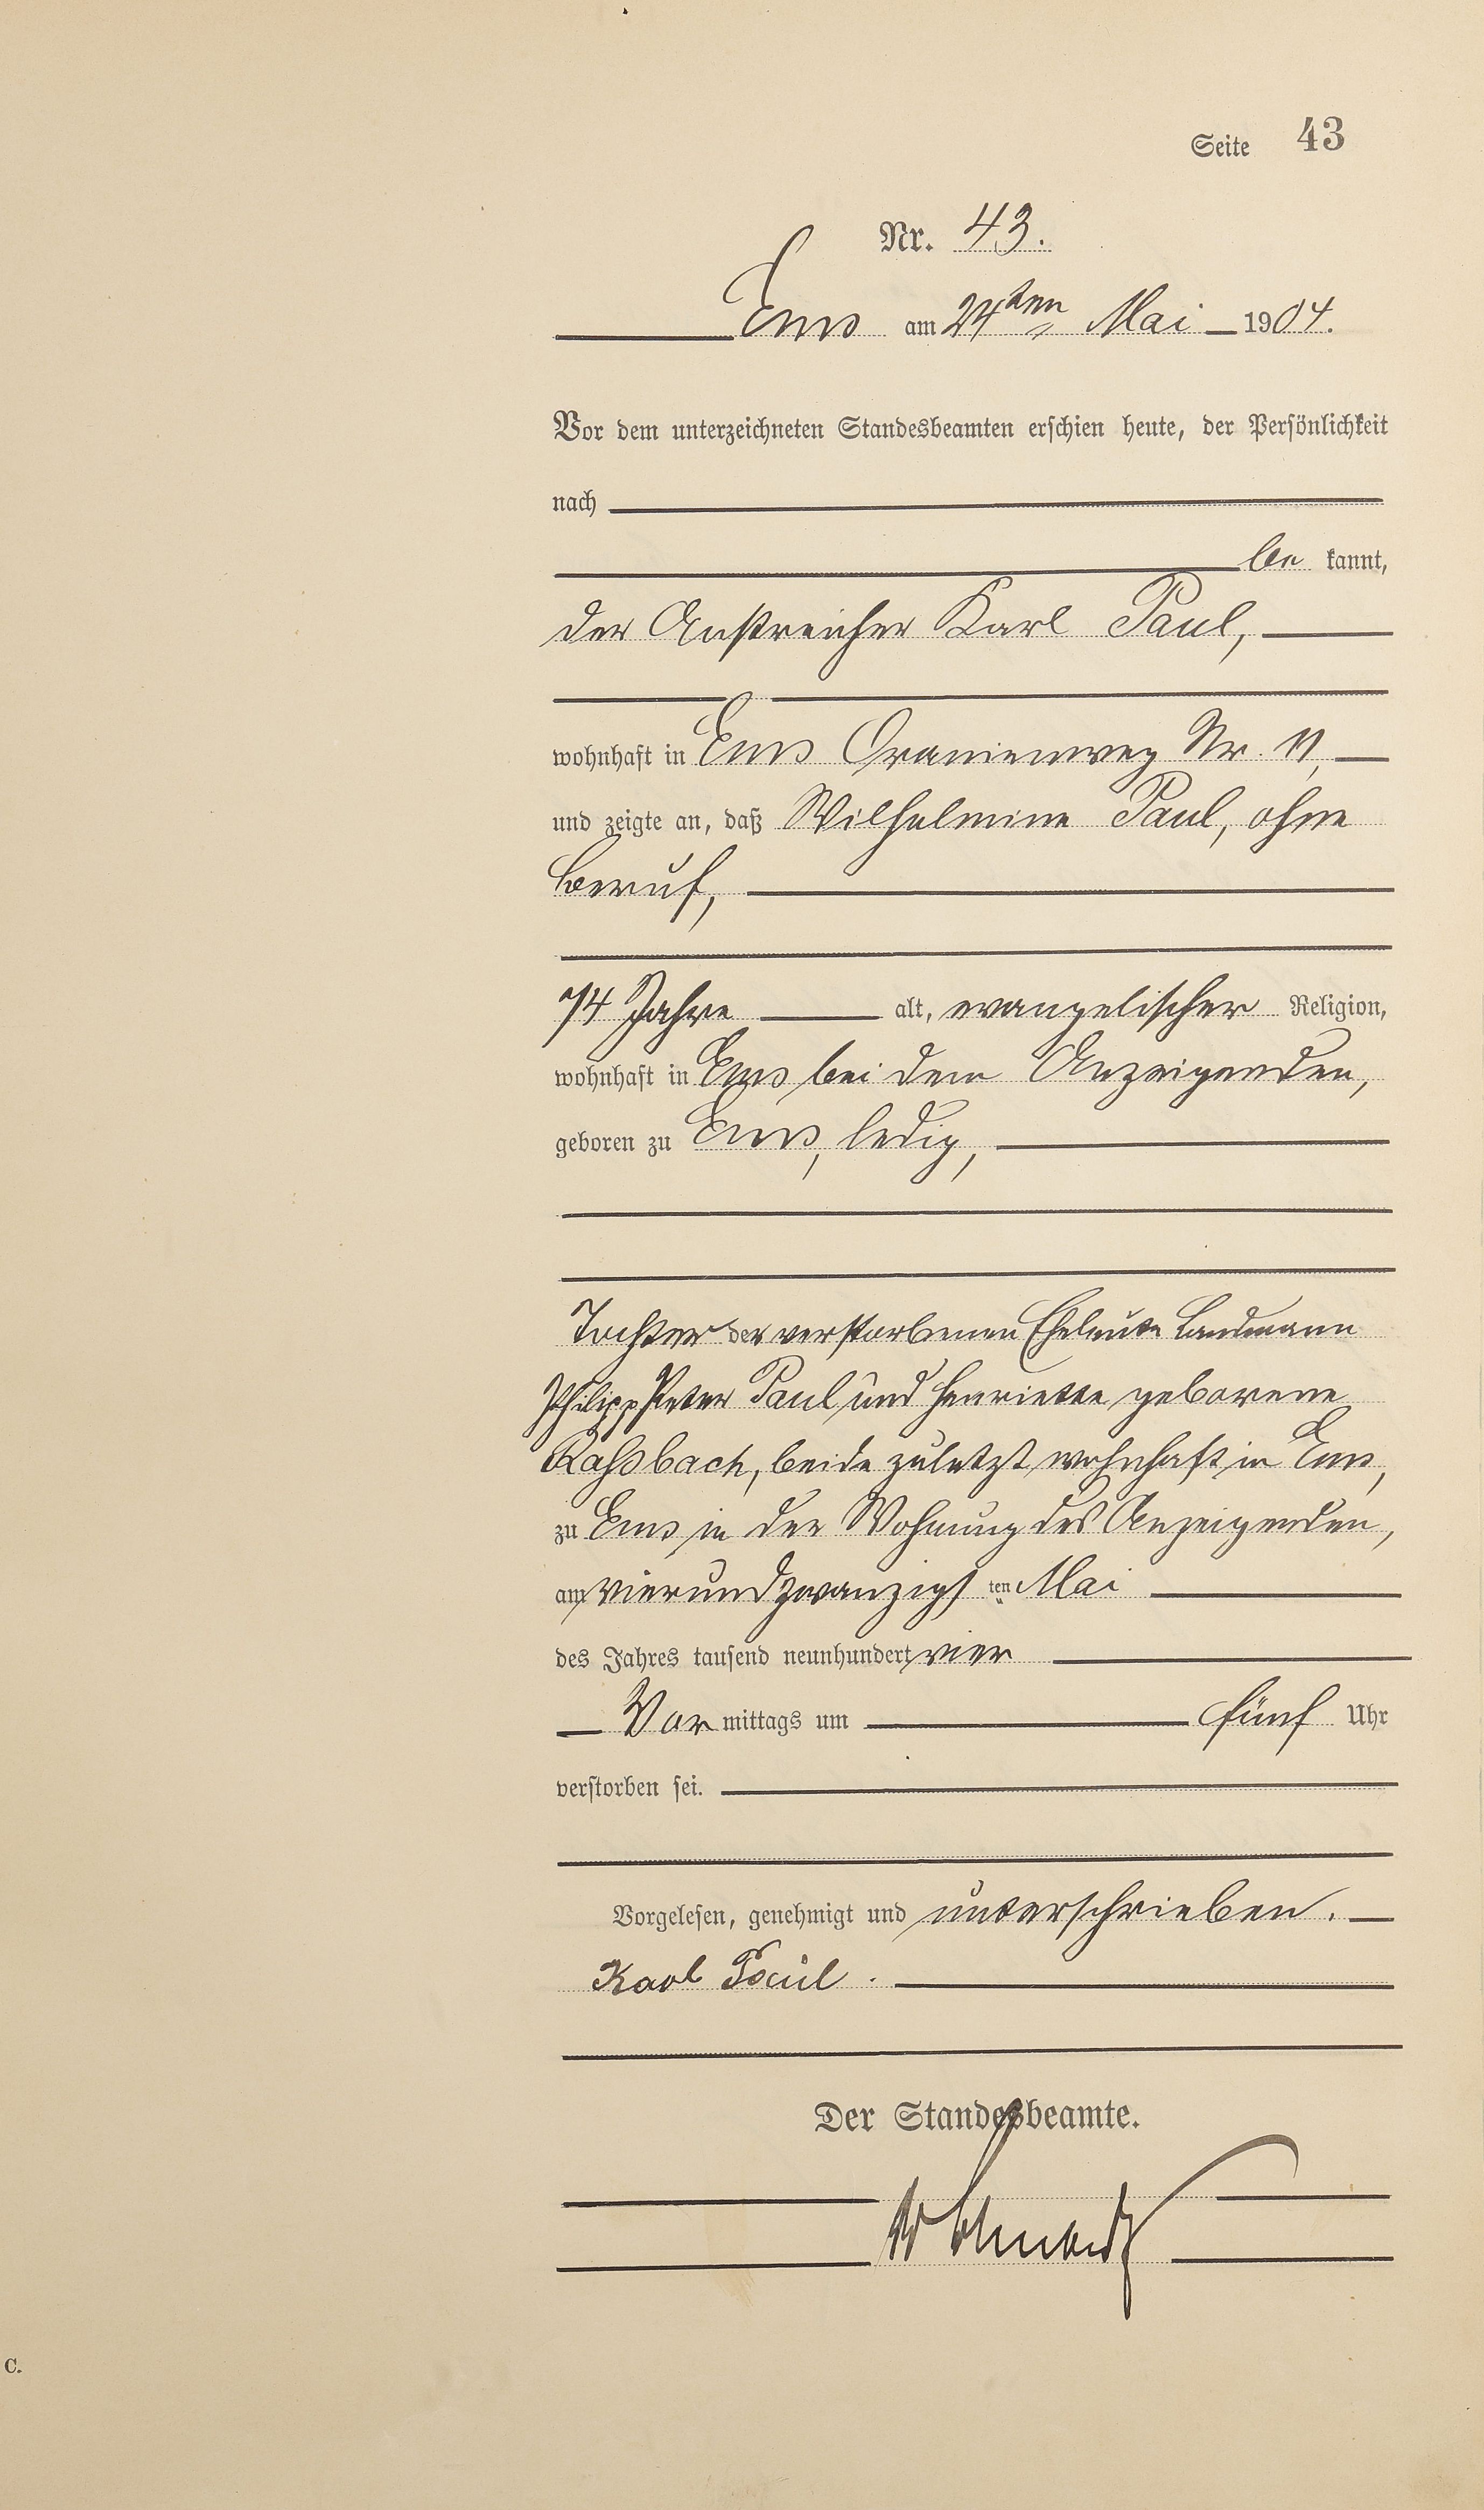 Seite 43
Nr. 43.
Ems am 24ten Mai 1904.
Vor dem unterzeichneten Standesbeamten erschien heute, der Persönlichkeit
nach
be kannt,
der Anstreicher Karl Paul,
wohnhaft in Ems Oranienweg Nr. 11,
und zeigte an, daß Wilhelmine Paul, ohne
Beruf,
74 Jahre alt, evangelischer Religion,
wohnhaft in Ems bei dem Anzeigenden,
geboren zu Ems, ledig,
Tochter der verstorbenen Eheleute Landmann
Philipp Peter Paul und Henriette geborene
Kaßbach, beide zuletzt wohnhaft in Ems,
zu Ems in der Wohnung des Anzeigenden,
am vierundzwanzigs ten Mai
des Jahres tausend neunhundert vier
Vor mittags um fünf Uhr
verstorben sei.
Vorgelesen, genehmigt und unterschrieben.
Karl Paul.
Der Standesbeamte.
C.